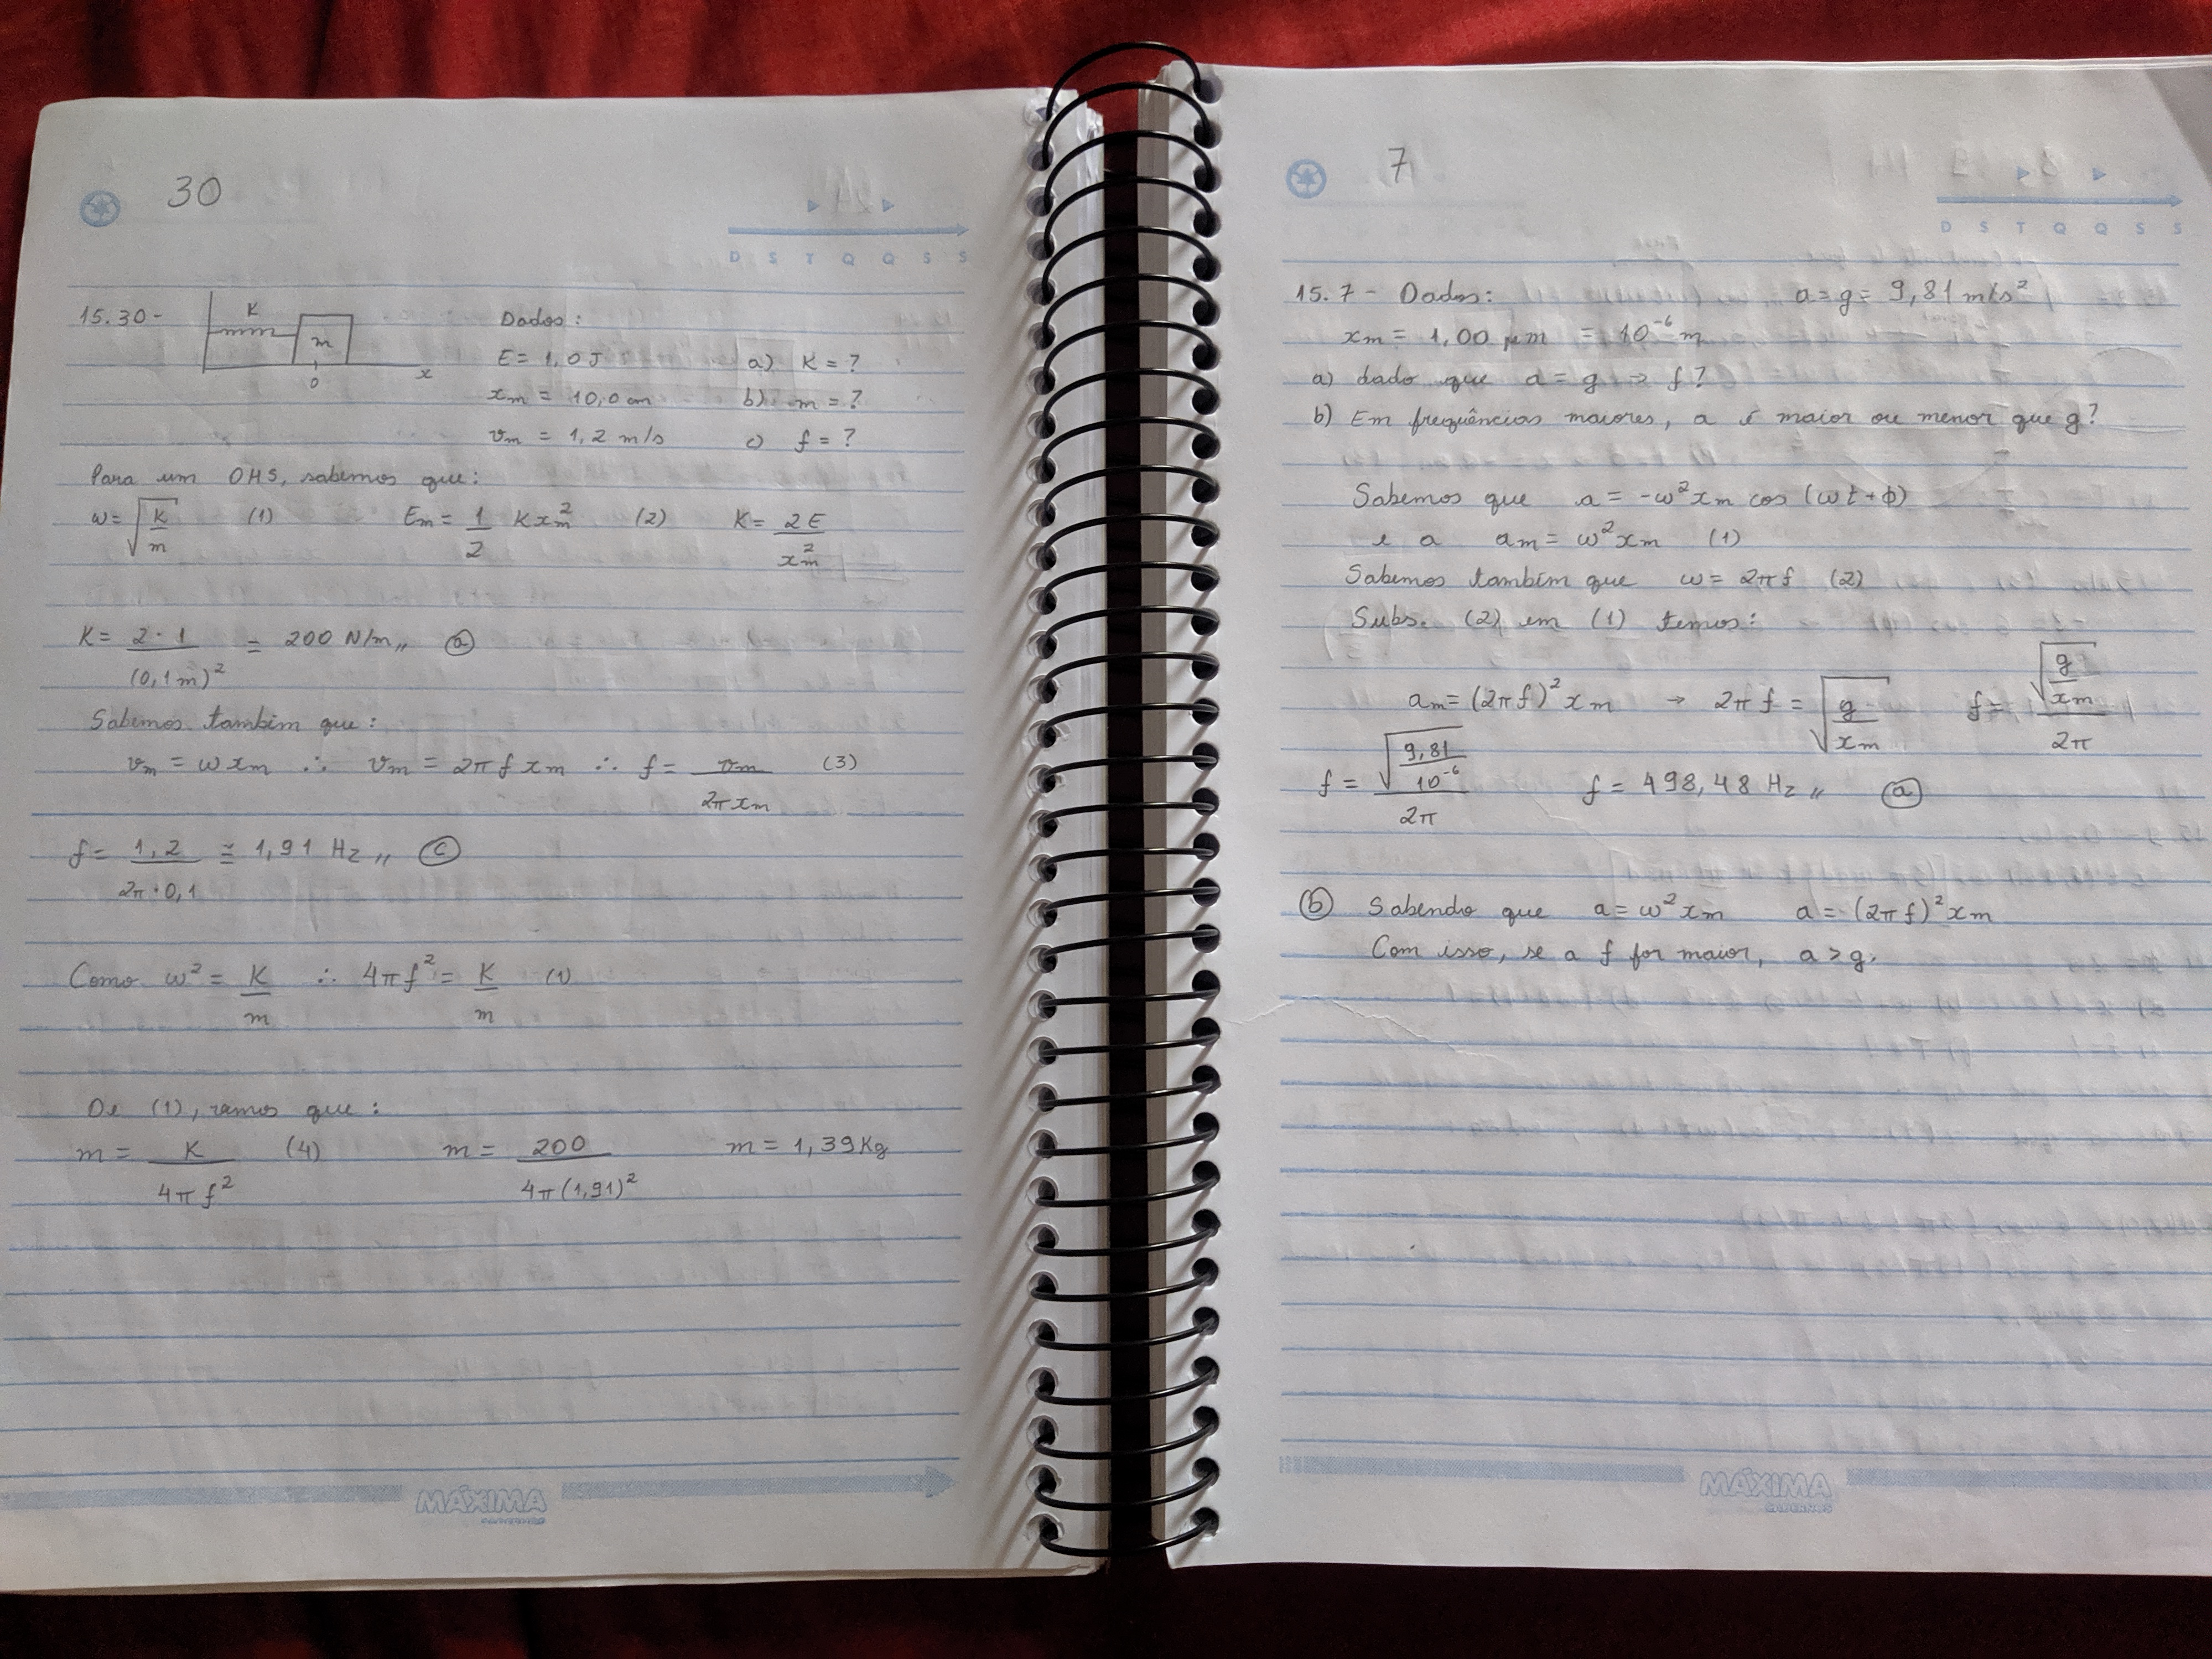 30
D S T Q Q S S
15.30- K m 0 x Dados:
E = 1,0 J a) K = ?
xm = 10,0 cm b) m = ?
vm = 1,2 m/s c) f = ?
Para um OHS, sabemos que:
w = √(k/m) (1) Em = 1/2 k xm² (2) K = 2E/xm²
K = 2·1/(0,1m)² = 200 N/m,, (a)
Sabemos também que:
vm = w xm ∴ vm = 2π f xm ∴ f = vm/2π xm (3)
f = 1,2/2π·0,1 = 1,91 Hz,, (c)
Como w² = K/m ∴ 4π f² = K/m (1)
De (1), temos que:
m = K/4π f² (4) m = 200/4π(1,91)² m = 1,39 Kg
MÁXIMA
7
D S T Q Q S S
15.7 - Dados:
a = g = 9,81 m/s²
xm = 1,00 μm = 10⁻⁶ m
a) dado que a = g → f?
b) Em frequências maiores, a é maior ou menor que g?
Sabemos que a = -w² xm cos (wt + ϕ)
e a am = w² xm (1)
Sabemos também que w = 2π f (2)
Subs. (2) em (1) temos:
am = (2π f)² xm → 2π f = √(g/xm) f = √(g/xm)/2π
f = √(9,81/10⁻⁶)/2π f = 498,48 Hz,, (a)
(b) Sabendo que a = w² xm a = (2π f)² xm
Com isso, se a f for maior, a > g.
MÁXIMA